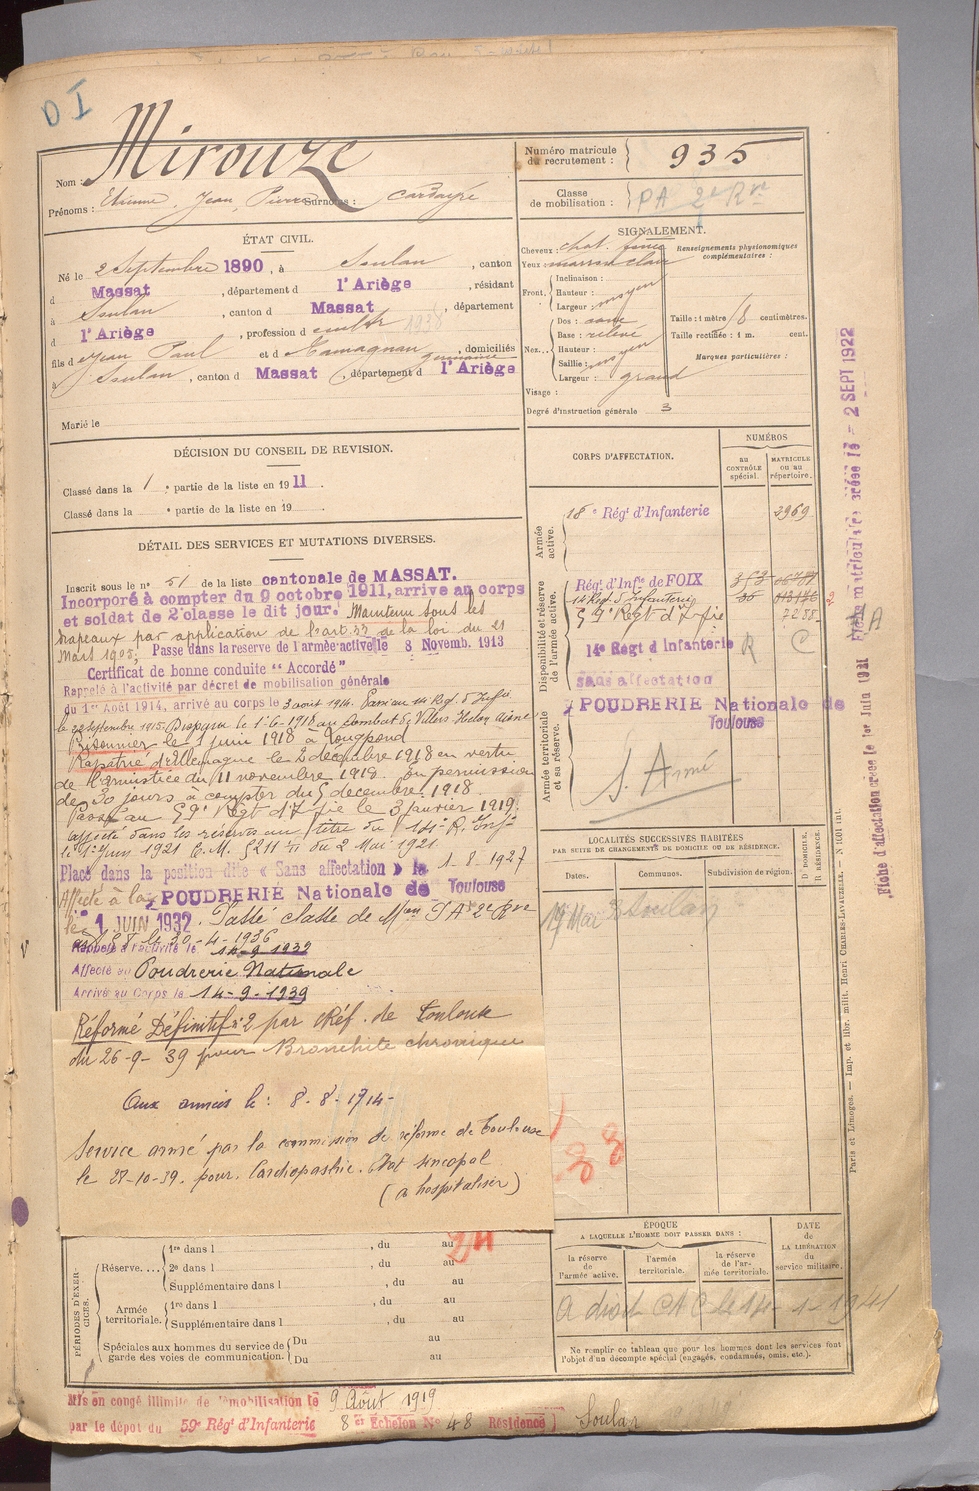 D I
Nom : Mirouze
Prénoms : Etienne, Jean, Pierre Surnoms : Cardayré
Numéro matricule du recrutement : 935
Classe de mobilisation : PA 2e Rve
ÉTAT CIVIL.
Né le 2 Septembre 1890, à Soulan, canton
d Massat, département d l'Ariège, résidant
à Soulan, canton d Massat, département
d l'Ariège, profession de cultr 1938
fils d Jean Paul et d Tamagnan germaine, domiciliés
à Soulan, canton d Massat, département d l'Ariège
Marié le
SIGNALEMENT.
Cheveux : chat. foncé
Yeux : marron clair
Front. Inclinaison :
Hauteur :
Largeur : moyen
Nez... Dos : cave
Base : relevé
Hauteur :
Saillie : moyen
Largeur : grand
Visage :
Degré d'instruction générale 3
Renseignements physionomiques complémentaires :
Taille : 1 mètre centimètres.
Taille rectifiée : 1 m. cent.
Marques particulières :
DÉCISION DU CONSEIL DE REVISION.
Classé dans la 1 e partie de la liste en 1911.
Classé dans la e partie de la liste en 19
DÉTAIL DES SERVICES ET MUTATIONS DIVERSES.
Inscrit sous le n° 51 de la liste cantonale de MASSAT.
Incorporé à compter du 9 octobre 1911, arrive au corps
et soldat de 2e classe le dit jour. Maintenu sous les
drapeaux par application de l'art. 33 de la loi du 21
Mars 1905. Passe dans la reserve de l'armée active le 8 Novemb. 1913
Certificat de bonne conduite "Accordé"
Rappelé à l'activité par décret de mobilisation générale
du 1er Août 1914, arrivé au corps le 3 août 1914. Passé au 14 Reg. d'Infie
le 22 septembre 1915. Disparu le 1-6-1918 au Combat de Villers Helon aisne
Prisonnier le 1 juin 1918 à Longpond
Rapatrié d'Allemagne le 2 décembre 1918 en vertu
de l'armistice du 11 novembre 1918. En permission
de 30 jours à compter du 5 decembre 1918.
Passé au 59e Regt d'Ifie le 3 janvier 1919.
affecté dans les réserves au titre du 14e R. Inf.
le 1er Juin 1921 E.M. 5211 du 2 Mai 1921
Placé dans la position dite « Sans affectation » le 1-8-1927
Affecté à la POUDRERIE Nationale de Toulouse
le 1 JUIN 1932. Passé classe de Mon P A 2e Rve
art 58 30-4-1936
Rappelé à l'activité le 14-9-1939
Affecté au Poudrerie Nationale
Arrivé au Corps le 14-9-1939
Réformé Définitif n° 2 par Réf. de Toulouse
du 26-9-39 pour Bronchite chronique
Aux armées le : 8-8-1914-
Service armé par la commission de réforme de Toulouse
le 28-10-39. pour Cardiopathie. Etat sincopal
(a hospitaliser)
CORPS D'AFFECTATION.
NUMÉROS
au contrôle spécial.
matricule ou au répertoire.
Armée active.
18e Régt d'Infanterie 3969
Disponibilité et réserve de l'armée active.
Régt d'Infie de FOIX 353
14 Reg. d'Infanterie
59e Regt d'Ifie 7288
14e Regt d Infanterie R C A
sans affectation
POUDRERIE Nationale de Toulouse
Armée territoriale et sa réserve.
S. Armé
LOCALITÉS SUCCESSIVES HABITÉES
PAR SUITE DE CHANGEMENTS DE DOMICILE OU DE RÉSIDENCE.
D. DOMICILE.
R. RÉSIDENCE.
Dates. Communes. Subdivision de région.
Soulan
PÉRIODES D'EXERCICES.
Réserve.... 1re dans l , du au
2e dans l , du au
Supplémentaire dans l , du au
Armée territoriale. 1re dans l , du au
Supplémentaire dans l , du au
Spéciales aux hommes du service de garde des voies de communication. Du au
Du au
ÉPOQUE
A LAQUELLE L'HOMME DOIT PASSER DANS :
la réserve de l'armée active.
l'armée territoriale.
la réserve de l'armée territoriale.
DATE DE LA LIBÉRATION du service militaire.
A droit CAC le 14-1-1941
Ne remplir ce tableau que pour les hommes dont les services font
l'objet d'un décompte spécial (engagés, condamnés, omis, etc.).
Mis en congé illimité de démobilisation le 9 Août 1919
par le dépot du 59e Régt d'Infanterie 8e Echelon N° 48 Résidence Soulan
Fiche matriculaire créée le - 2 SEPT 1922
Fiche d'affectation créée le 1er Juin 1921
Paris et Limoges. — Imp. et libr. milit. Henri CHARLES-LAVAUZELLE. — N° 1001 int.